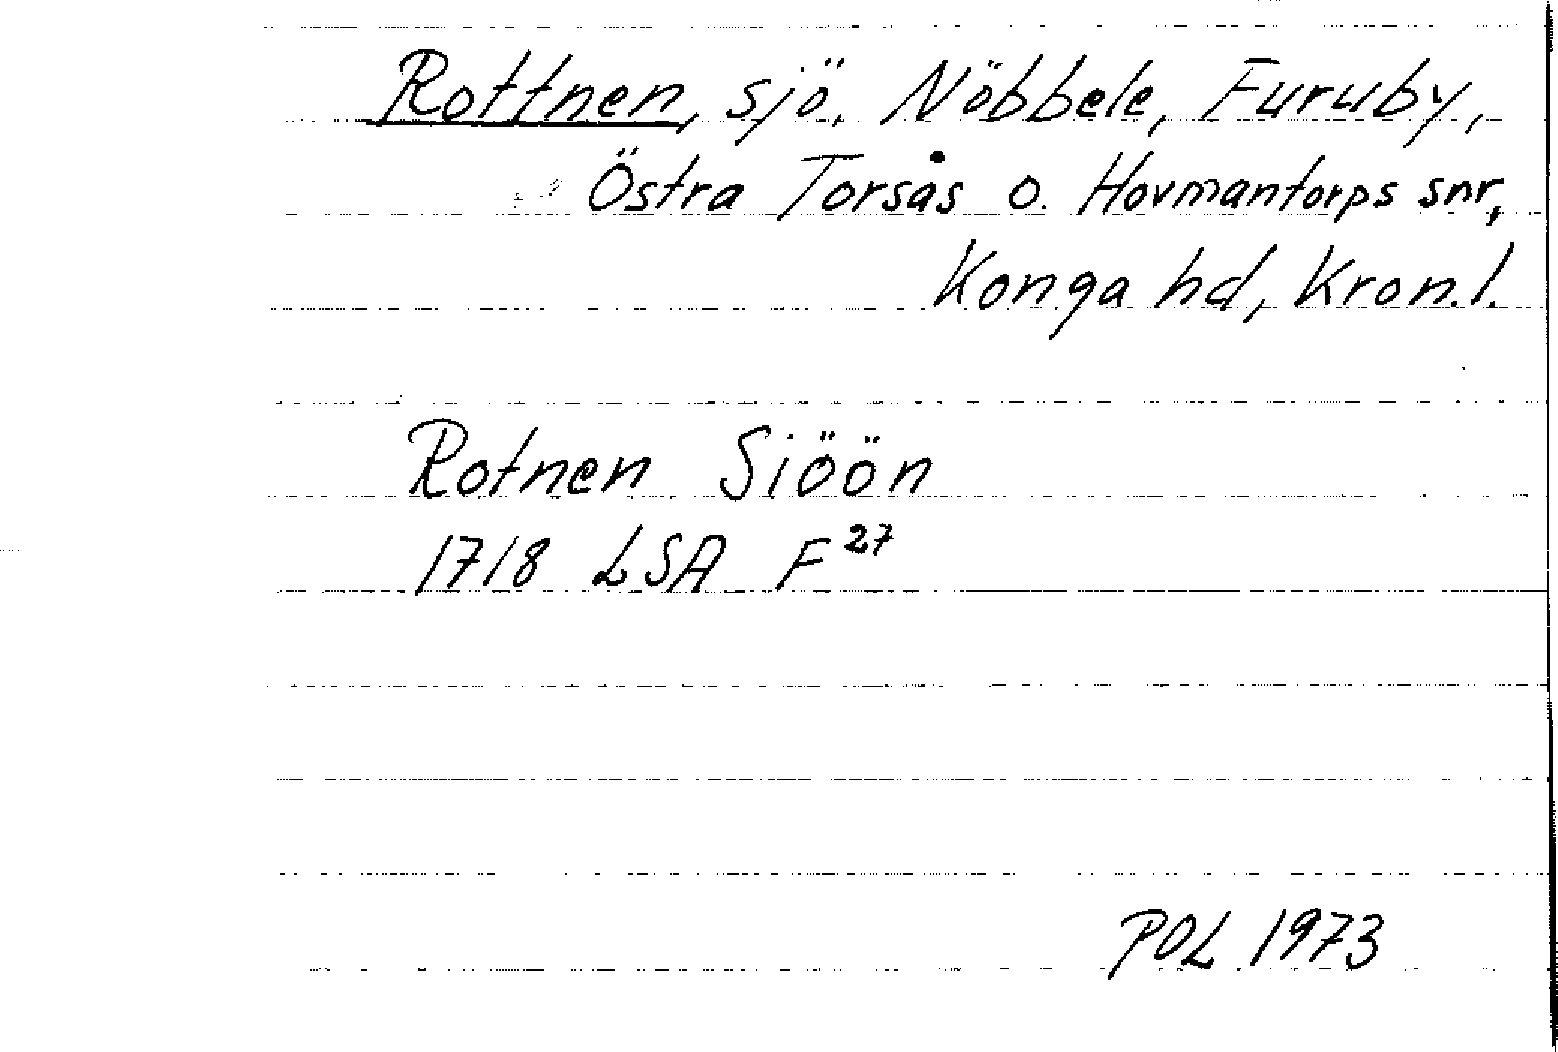 Rottnen, sjö, Nöbbele, Furuby,
Östra Torsås o. Hovmantorps snr,
Konga hd, Kron.l.
Rotnen Siöön
1718 LSA F 27
POL 1973